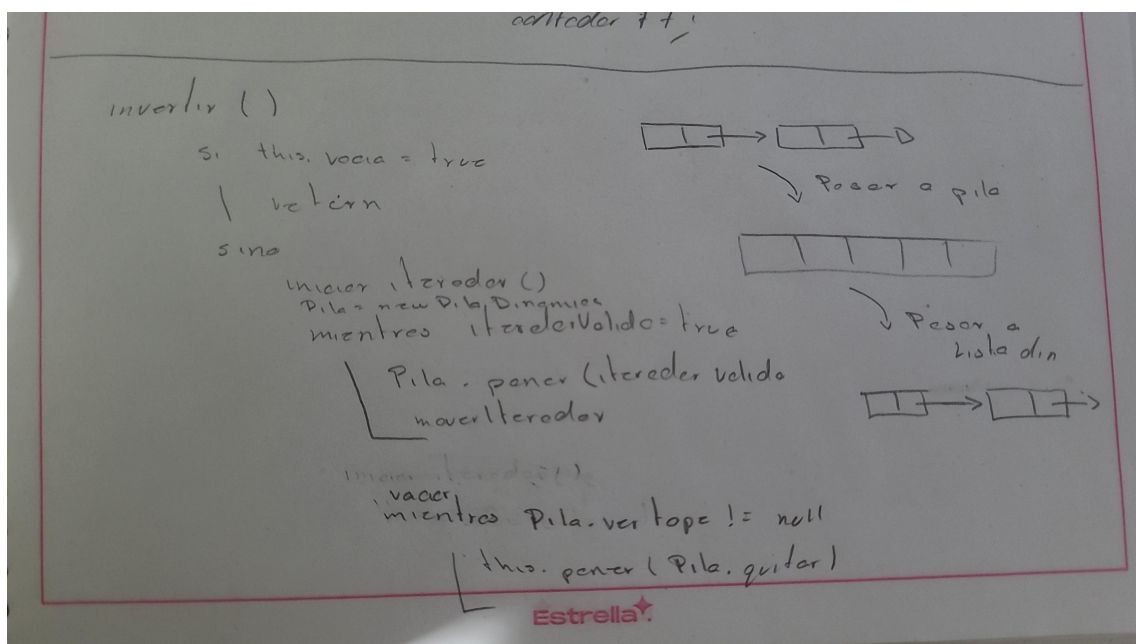 contador ++;
invertir ()
si this. vacia = true
return
sino
iniciar iterador ()
Pila = new Pila Dinamica
mientras iteradorValido = true
Pila . poner (iterador valido
moverIterador
iniciar iterador ()
vaciar
mientras Pila.ver tope != null
this. poner ( Pila. quitar )
Pasar a pila
Pasar a
Lista din
Estrella